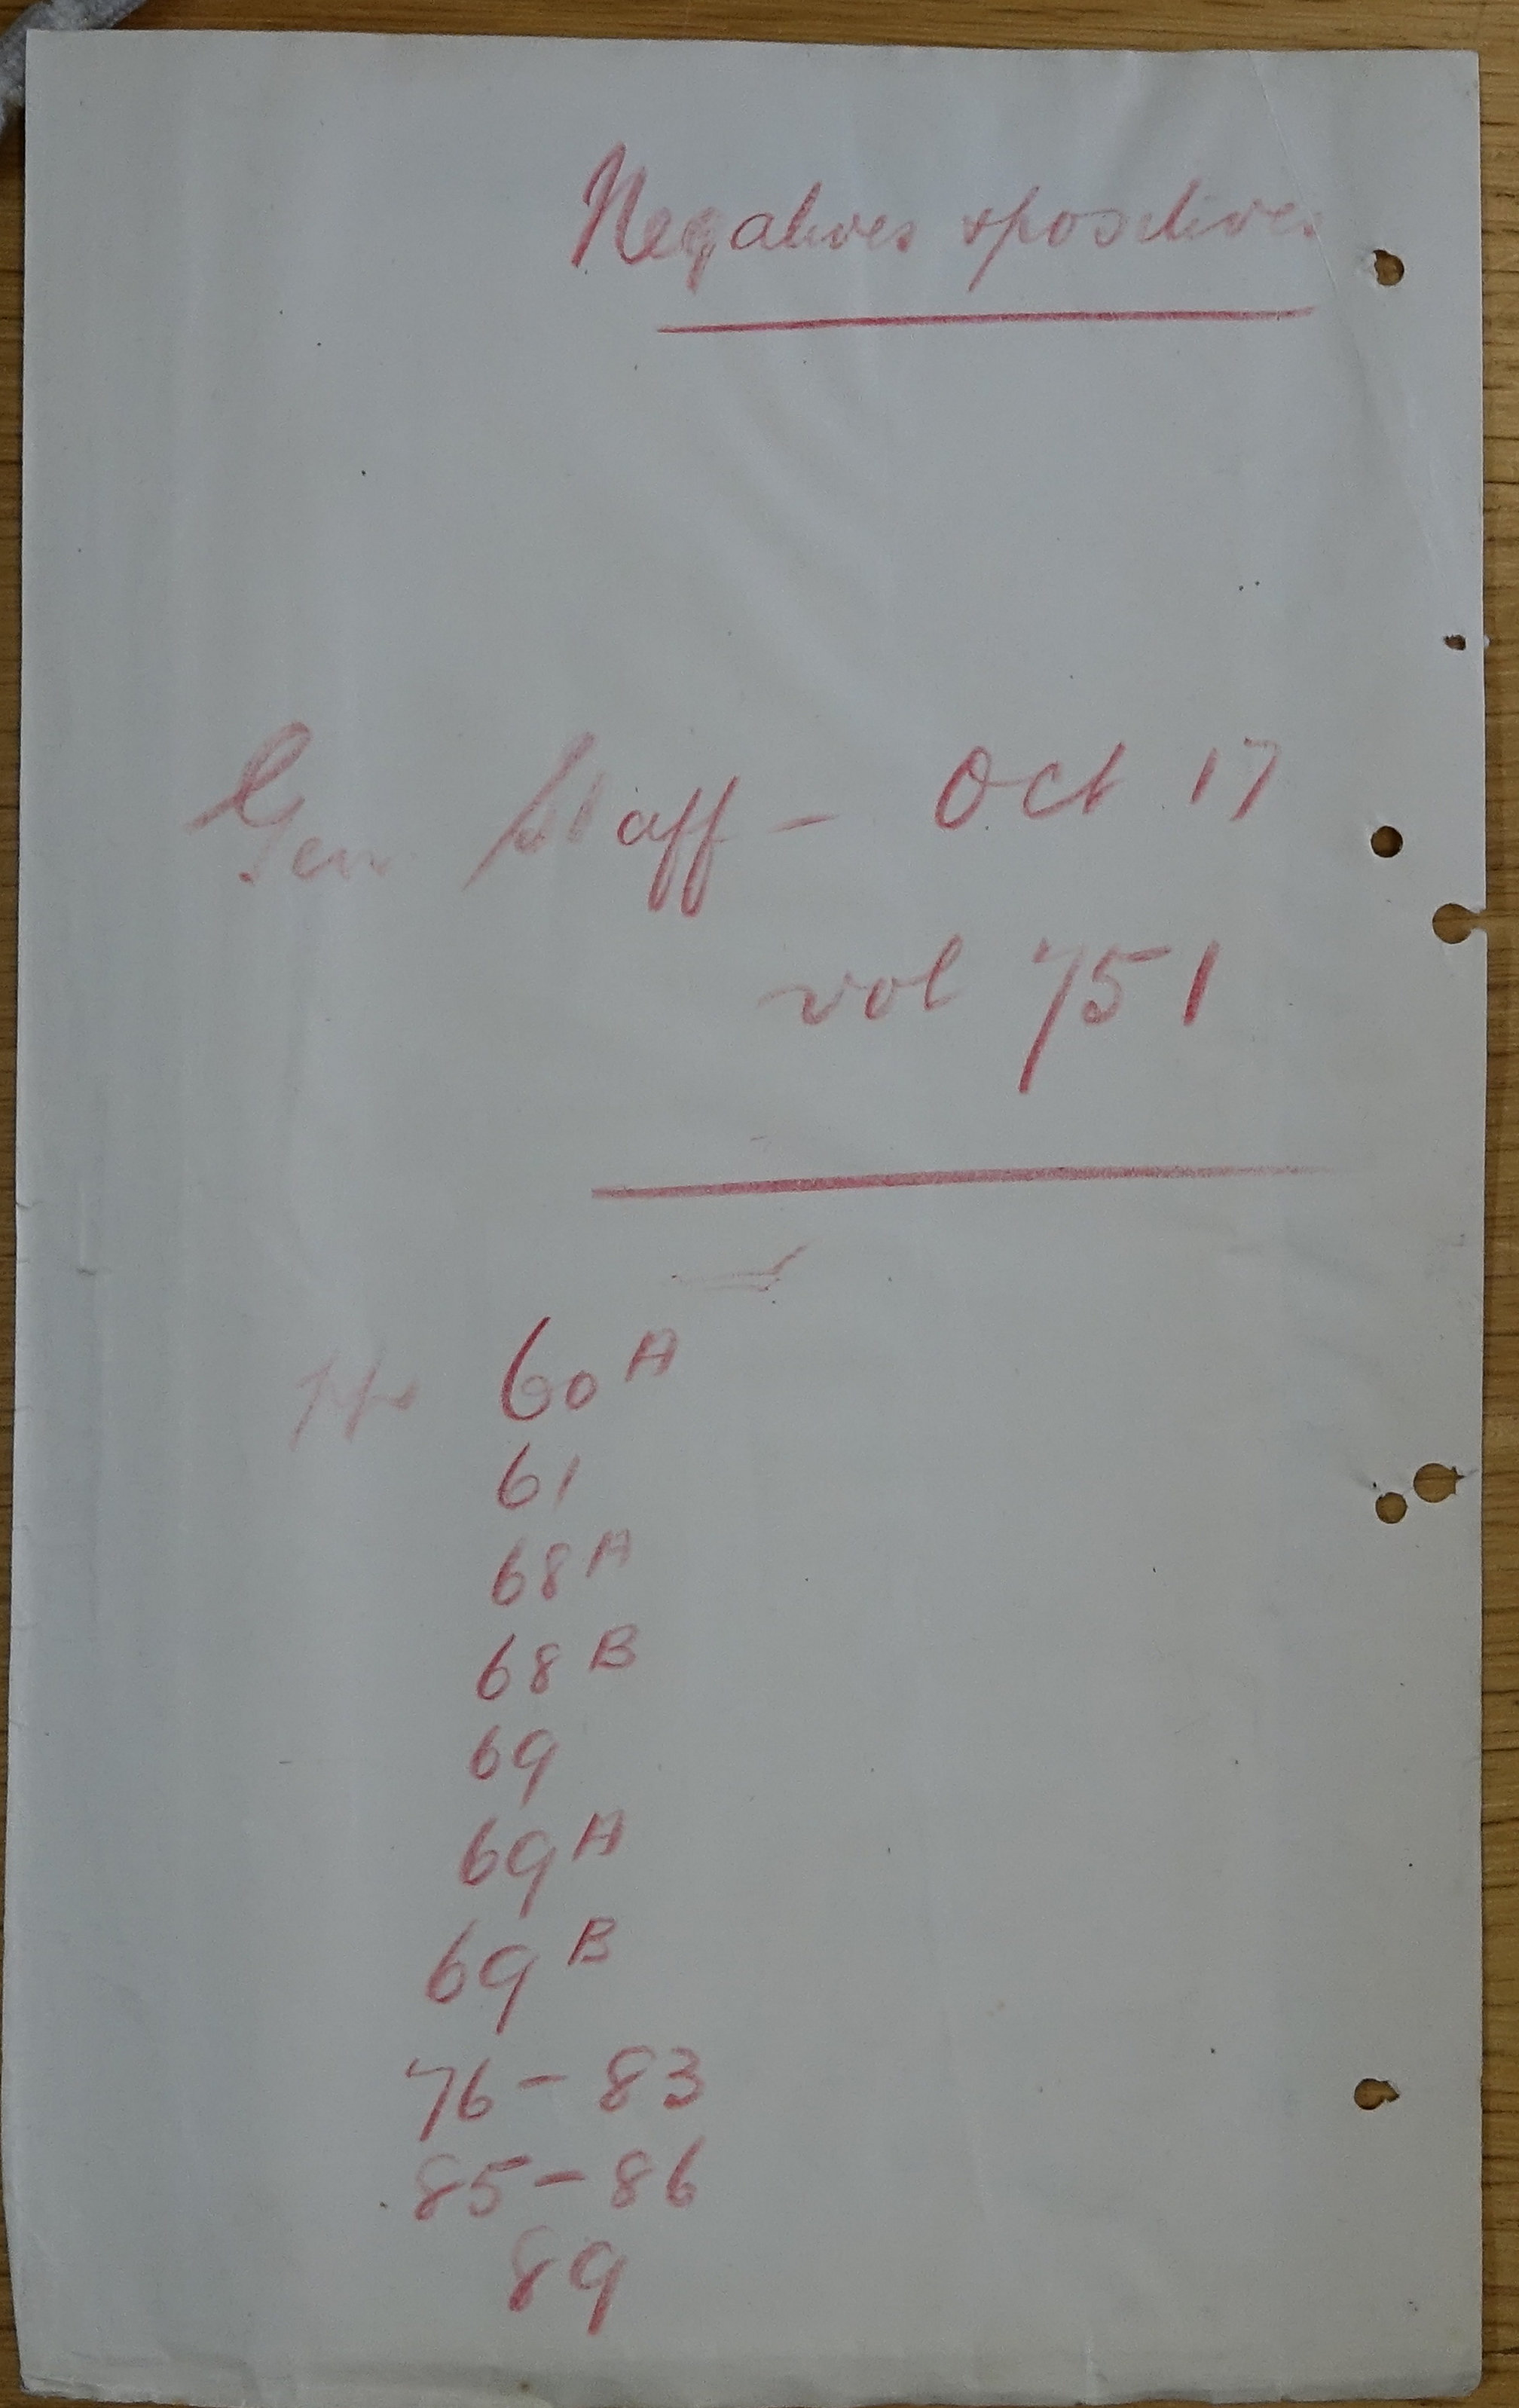 Negatives & positives
Gen Staff - Oct 17
vol 751
pps 60A
61
68A
68B
69
69A
69B
76-83
85-86
89